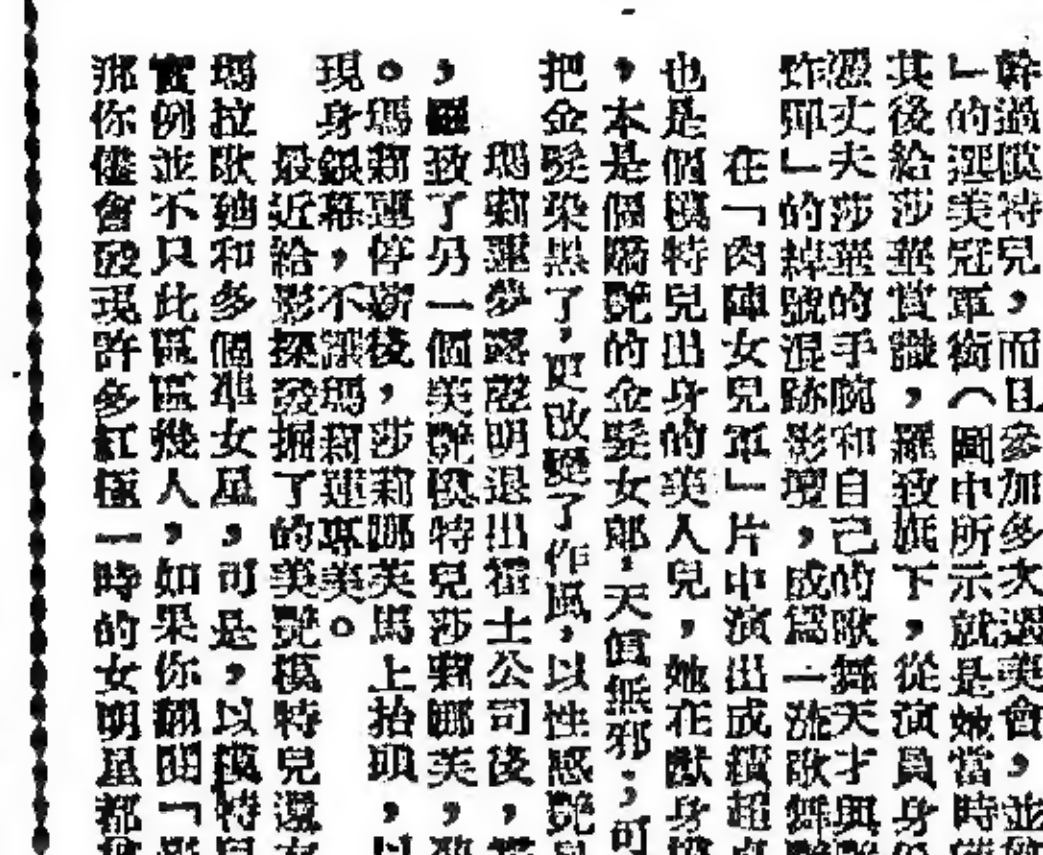 幹過模特兒，而且參加多次選美會，並
」的選美冠軍銜（圖中所示就是她當時
其後給莎華賞識，羅致旗下，從演員身
憑丈夫莎華的手腕和自己的歌舞天才與
炸彈」的綽號混跡影壇，成爲一流歌舞
在「肉陣女兒軍」片中演出成績超
也是個模特兒出身的美人兒，她在獻身
，本是個嬌艷的金髮女郎，天眞無邪，可
把金髮染黑了，更改變了作風，以性感艷
瑪莉蓮夢露聲明退出霍士公司後，
，羅致了另一個美艷模特兒莎莉娜英，
。瑪莉蓮停薪後，莎莉娜英馬上抬頭，以
現身銀幕，不讓瑪莉蓮專美。
最近給影探發掘了的美艷模特兒還有
瑪拉歌她和多個準女星，可是，以模特兒
實例並不只此區區幾人，如果你翻開「影
那你儘會發現許多紅極一時的女明星都